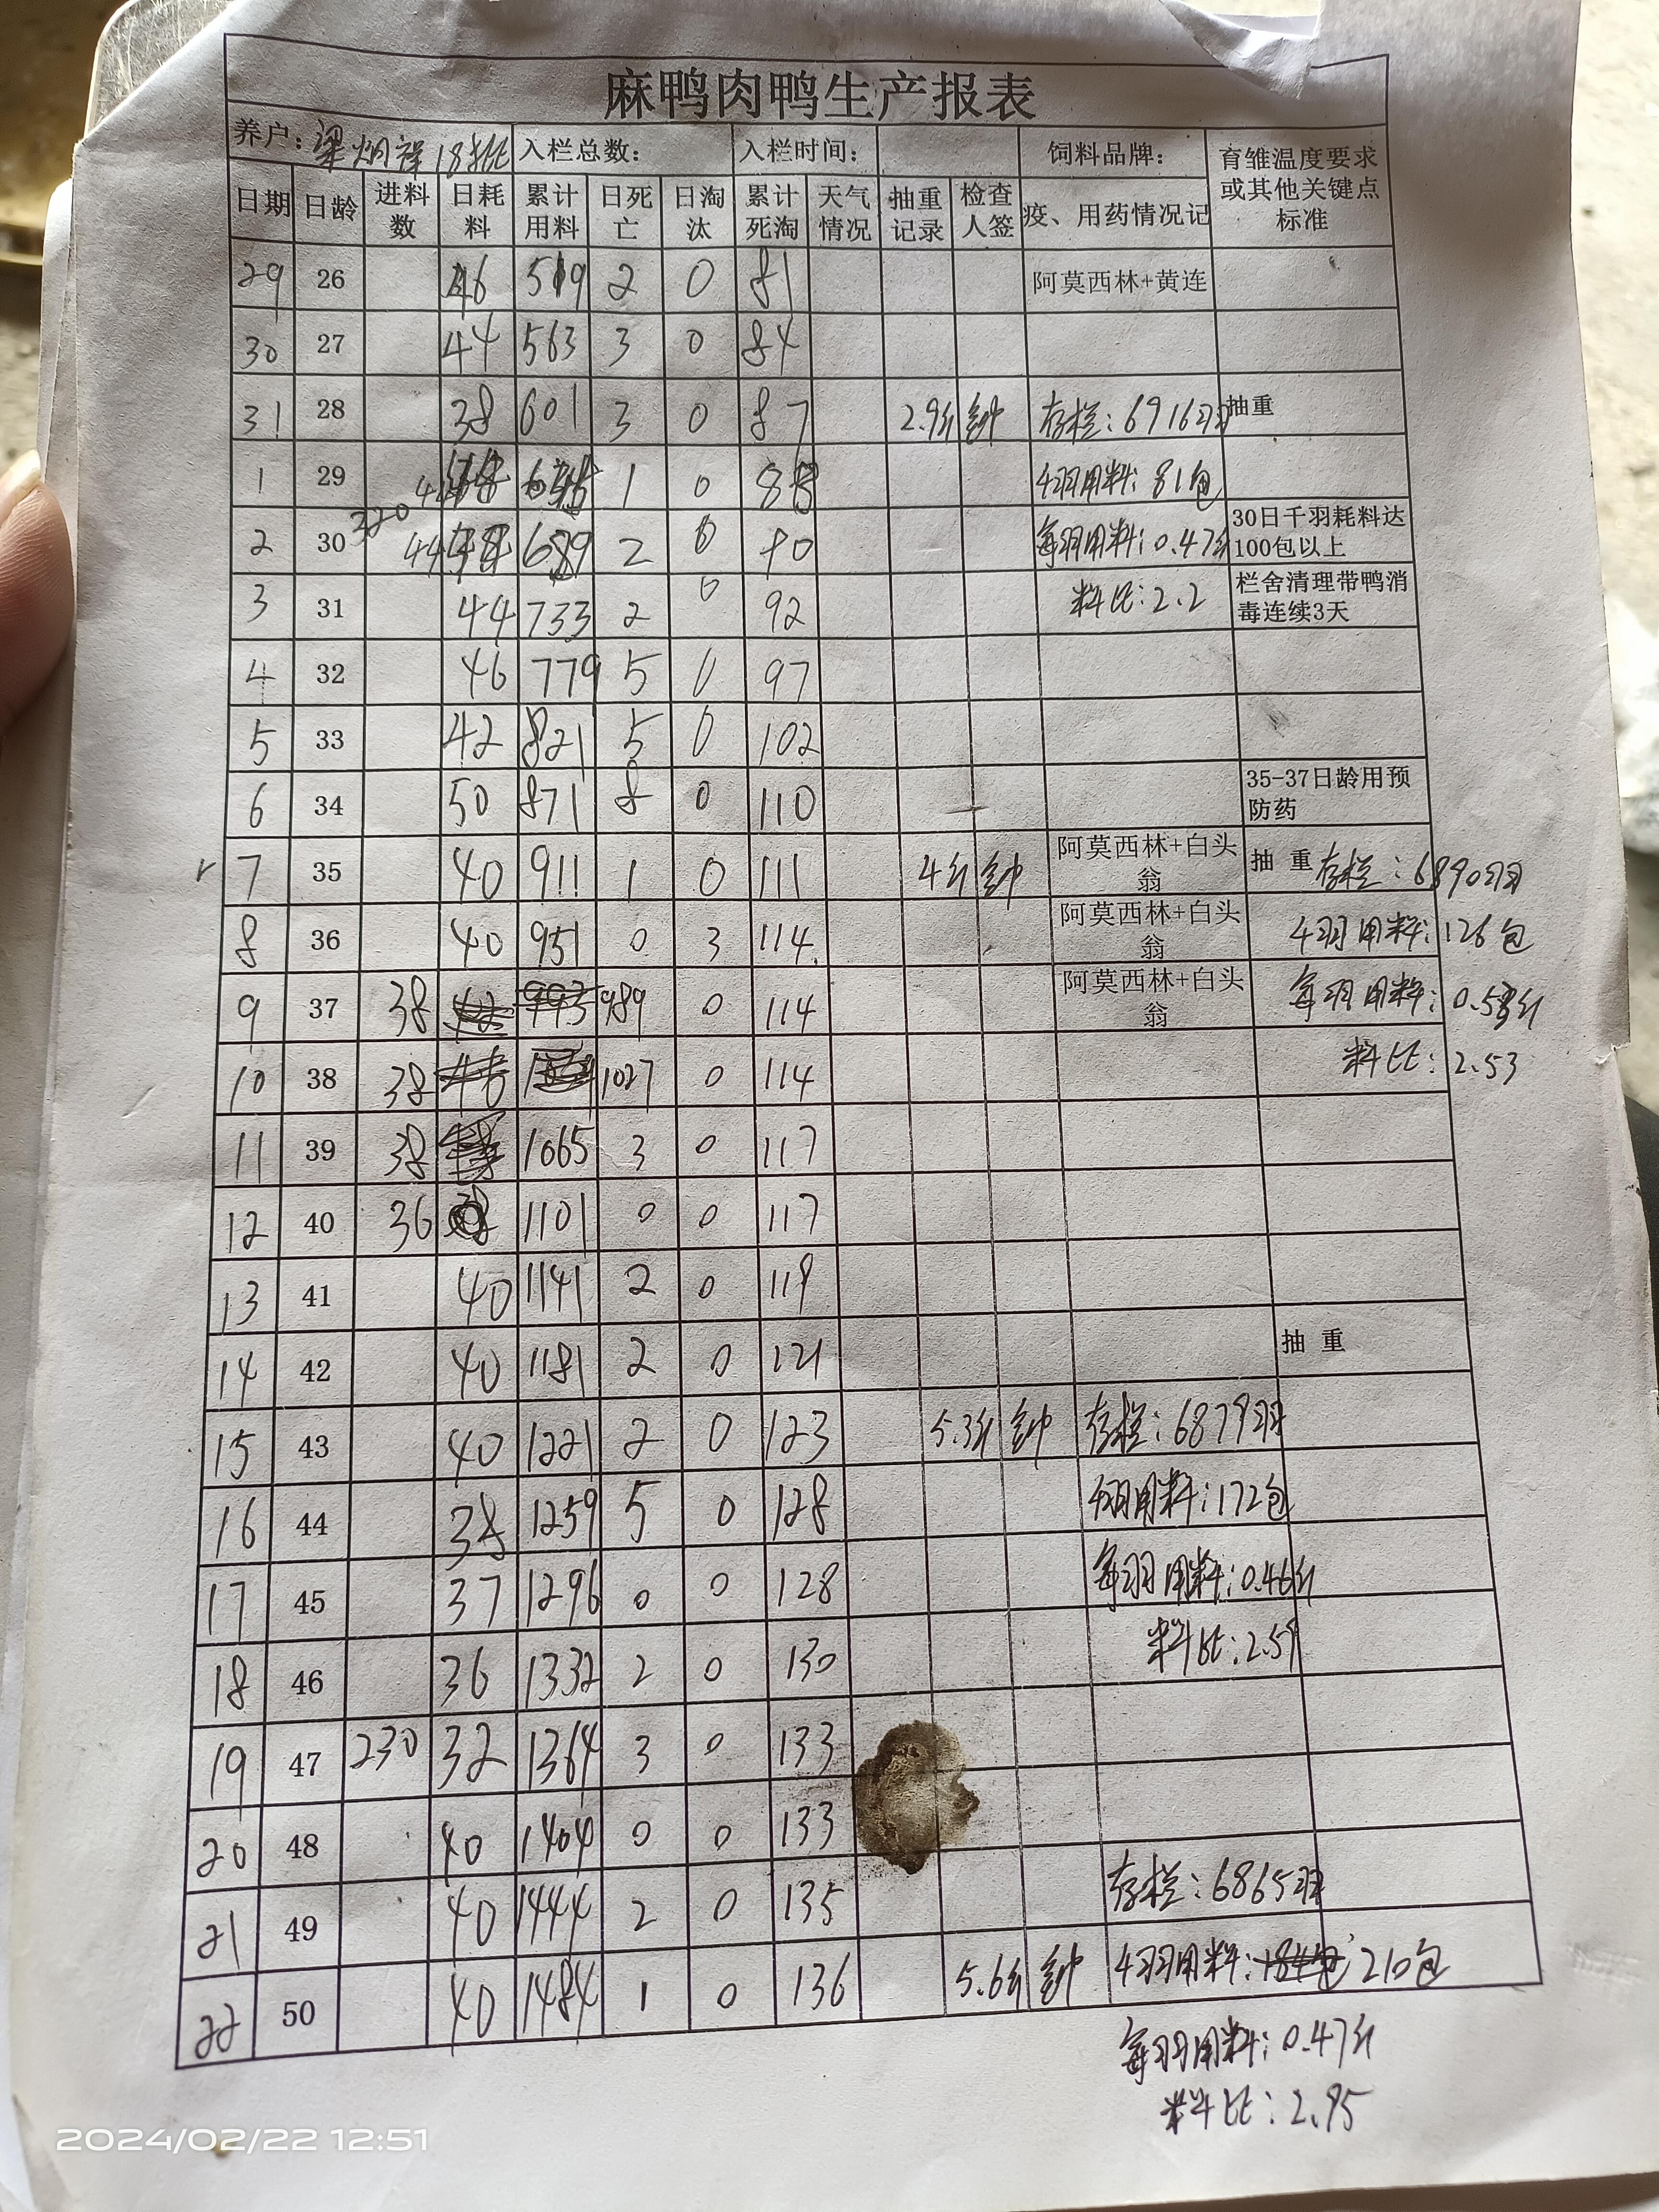 麻鸭肉鸭生产报表
养户：梁炯祥18批 入栏总数： 入栏时间： 饲料品牌： 育雏温度要求或其他关键点标准
日期 日龄 进料数 日耗料 累计用料 日死亡 日淘汰 累计死淘 天气情况 抽重记录 检查人签 疫、用药情况记
29 26 46 519 2 0 81 阿莫西林+黄连
30 27 44 563 3 0 84
31 28 38 601 3 0 87 2.9斤 钟 存栏：6916羽 抽重
1 29 44 1 0 88 千羽用料：81包
2 30 320 44 689 2 0 90 每羽用料：0.47斤 30日千羽耗料达100包以上
3 31 44 733 2 0 92 料比：2.2 栏舍清理带鸭消毒连续3天
4 32 46 779 5 0 97
5 33 42 821 5 0 102
6 34 50 871 8 0 110 35-37日龄用预防药
7 35 40 911 1 0 111 4斤 钟 阿莫西林+白头翁 抽 重 存栏：6890羽
8 36 40 951 0 3 114 阿莫西林+白头翁 千羽用料：126包
9 37 38 42 993 989 0 114 阿莫西林+白头翁 每羽用料：0.58斤
10 38 38 1027 0 114 料比：2.53
11 39 38 1065 3 0 117
12 40 36 1101 0 0 117
13 41 40 1141 2 0 119
14 42 40 1181 2 0 121 抽 重
15 43 40 1221 2 0 123 5.3斤 钟 存栏：6879羽
16 44 38 1259 5 0 128 千羽用料：172包
17 45 37 1296 0 0 128 每羽用料：0.46斤
18 46 36 1332 2 0 130 料比：2.59
19 47 230 32 1364 3 0 133
20 48 40 1404 0 0 133
21 49 40 1444 2 0 135 存栏：6865羽
22 50 40 1484 1 0 136 5.6斤 钟 千羽用料：184包 210包
每羽用料：0.47斤
料比：2.95
2024/02/22 12:51